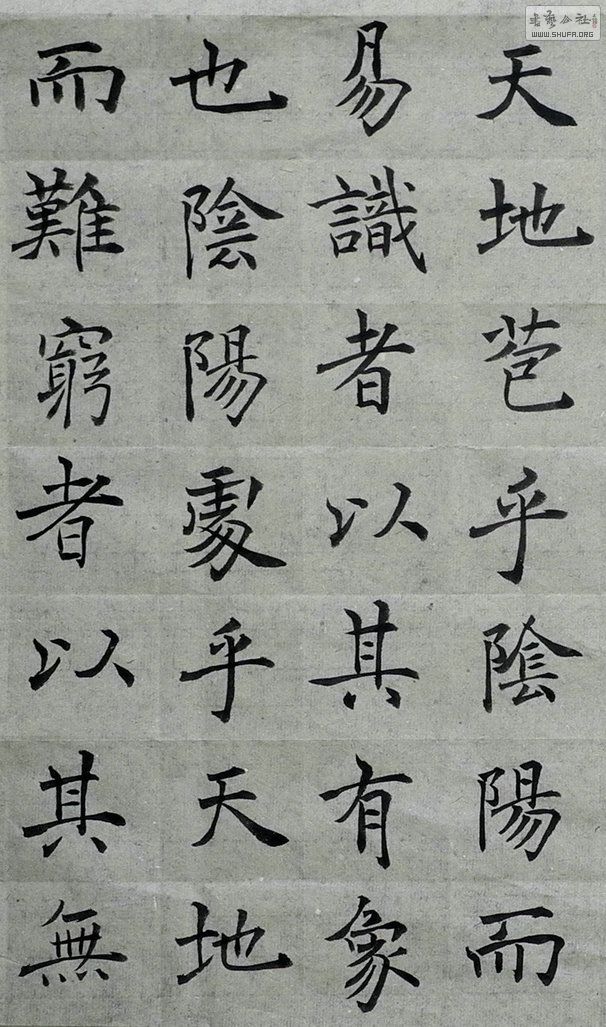 天地苞乎陰陽而
易識者以其有象
也陰陽處乎天地
而難窮者以其無
WWW.SHUFA.ORG